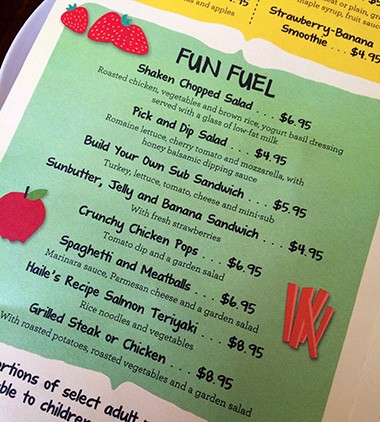 4.95
and apples
wheat or plain, gr
maple syrup, fruit sauce
Strawberry-Banana
Smoothie . . . $4.95
FUN FUEL
Shaken Chopped Salad . . . $6.95
Roasted chicken, vegetables and brown rice, yogurt basil dressing
served with a glass of low-fat milk
Pick and Dip Salad . . . $4.95
Romaine lettuce, cherry tomato and mozzarella, with
honey balsamic dipping sauce
Build Your Own Sub Sandwich . . . . $5.95
Turkey, lettuce, tomato, cheese and mini-sub
Sunbutter, Jelly and Banana Sandwich . . . . $4.95
With fresh strawberries
Crunchy Chicken Pops . . . . $6.95
Tomato dip and a garden salad
Spaghetti and Meatballs . . . . $6.95
Marinara sauce, Parmesan cheese and a garden salad
Haile's Recipe Salmon Teriyaki . . . . $8.95
Rice noodles and vegetables
Grilled Steak or Chicken . . . . $8.95
With roasted potatoes, roasted vegetables and a garden salad
ortions of select adult
ble to children